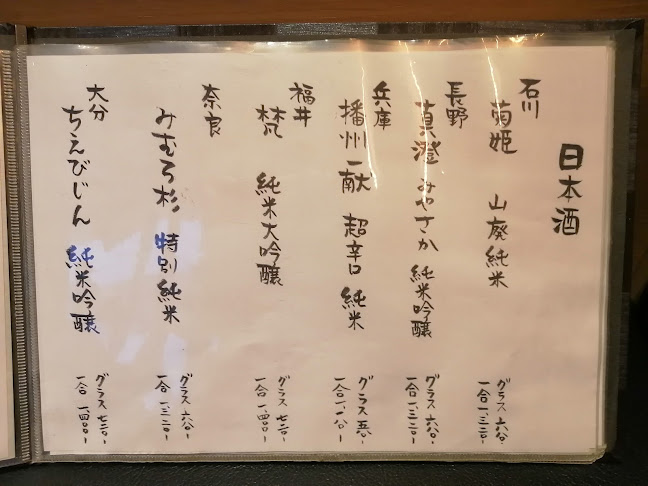 日本酒
石川
菊姫 山廃純米
グラス
一合 一、三二〇-
長野
真澄 みやさか 純米吟醸
グラス
一合 一、三二〇-
兵庫
播州一献 超辛口 純米
グラス
一合
福井
梵 純米大吟醸
グラス
一合 一、四〇〇-
奈良
みむろ杉 特別純米
グラス
一合 一、三二〇-
大分
ちえびじん 純米吟醸
グラス
一合 一、四〇〇-